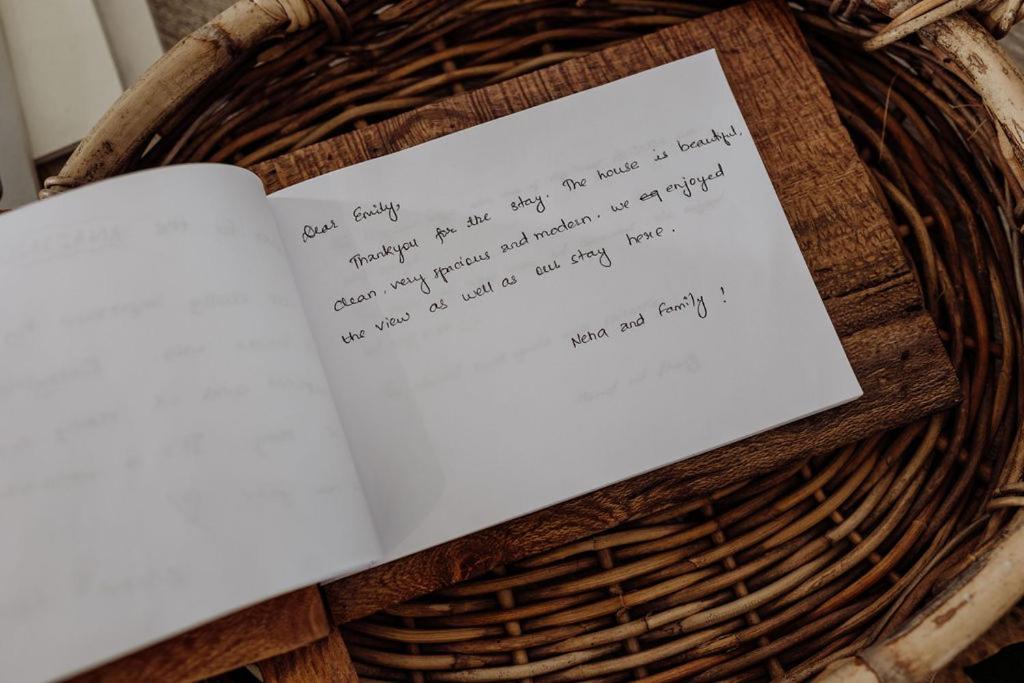 Dear Emily,
Thankyou for the stay. The house is beautiful,
clean, very spacious and modern. we enjoyed
the view as well as our stay here.
Neha and Family !